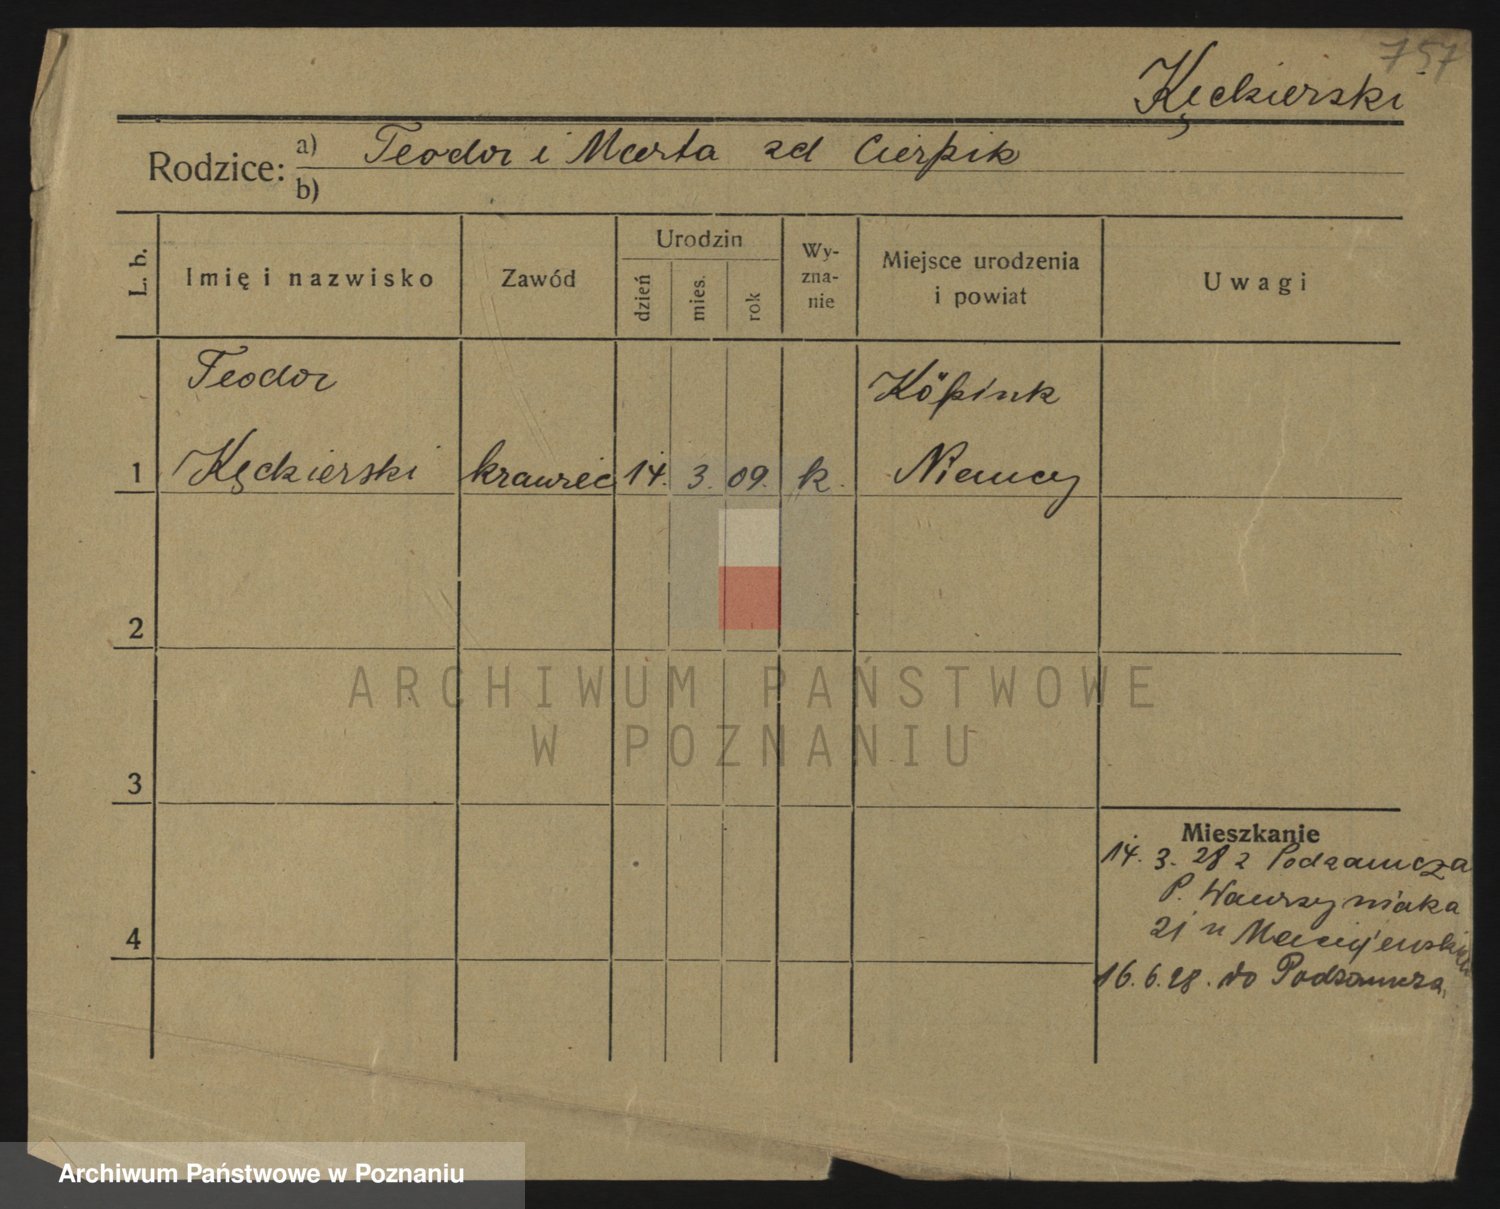 757
Kęckierski
Rodzice: a) Teodor i Marta zd Cierpik
b)
L. b. Imię i nazwisko Zawód Urodzin dzień mies. rok Wy-zna-nie Miejsce urodzenia i powiat Uwagi
Teodor Köpink
1 Kęckierski krawiec 14. 3. 09. k. Niemcy
2
3
Mieszkanie
14. 3. 28 z Podzamcza
P. Wawrzyniaka
4 21 u
16. 6. 28. do Podzamcza
ARCHIWUM PAŃSTWOWE
W POZNANIU
Archiwum Państwowe w Poznaniu